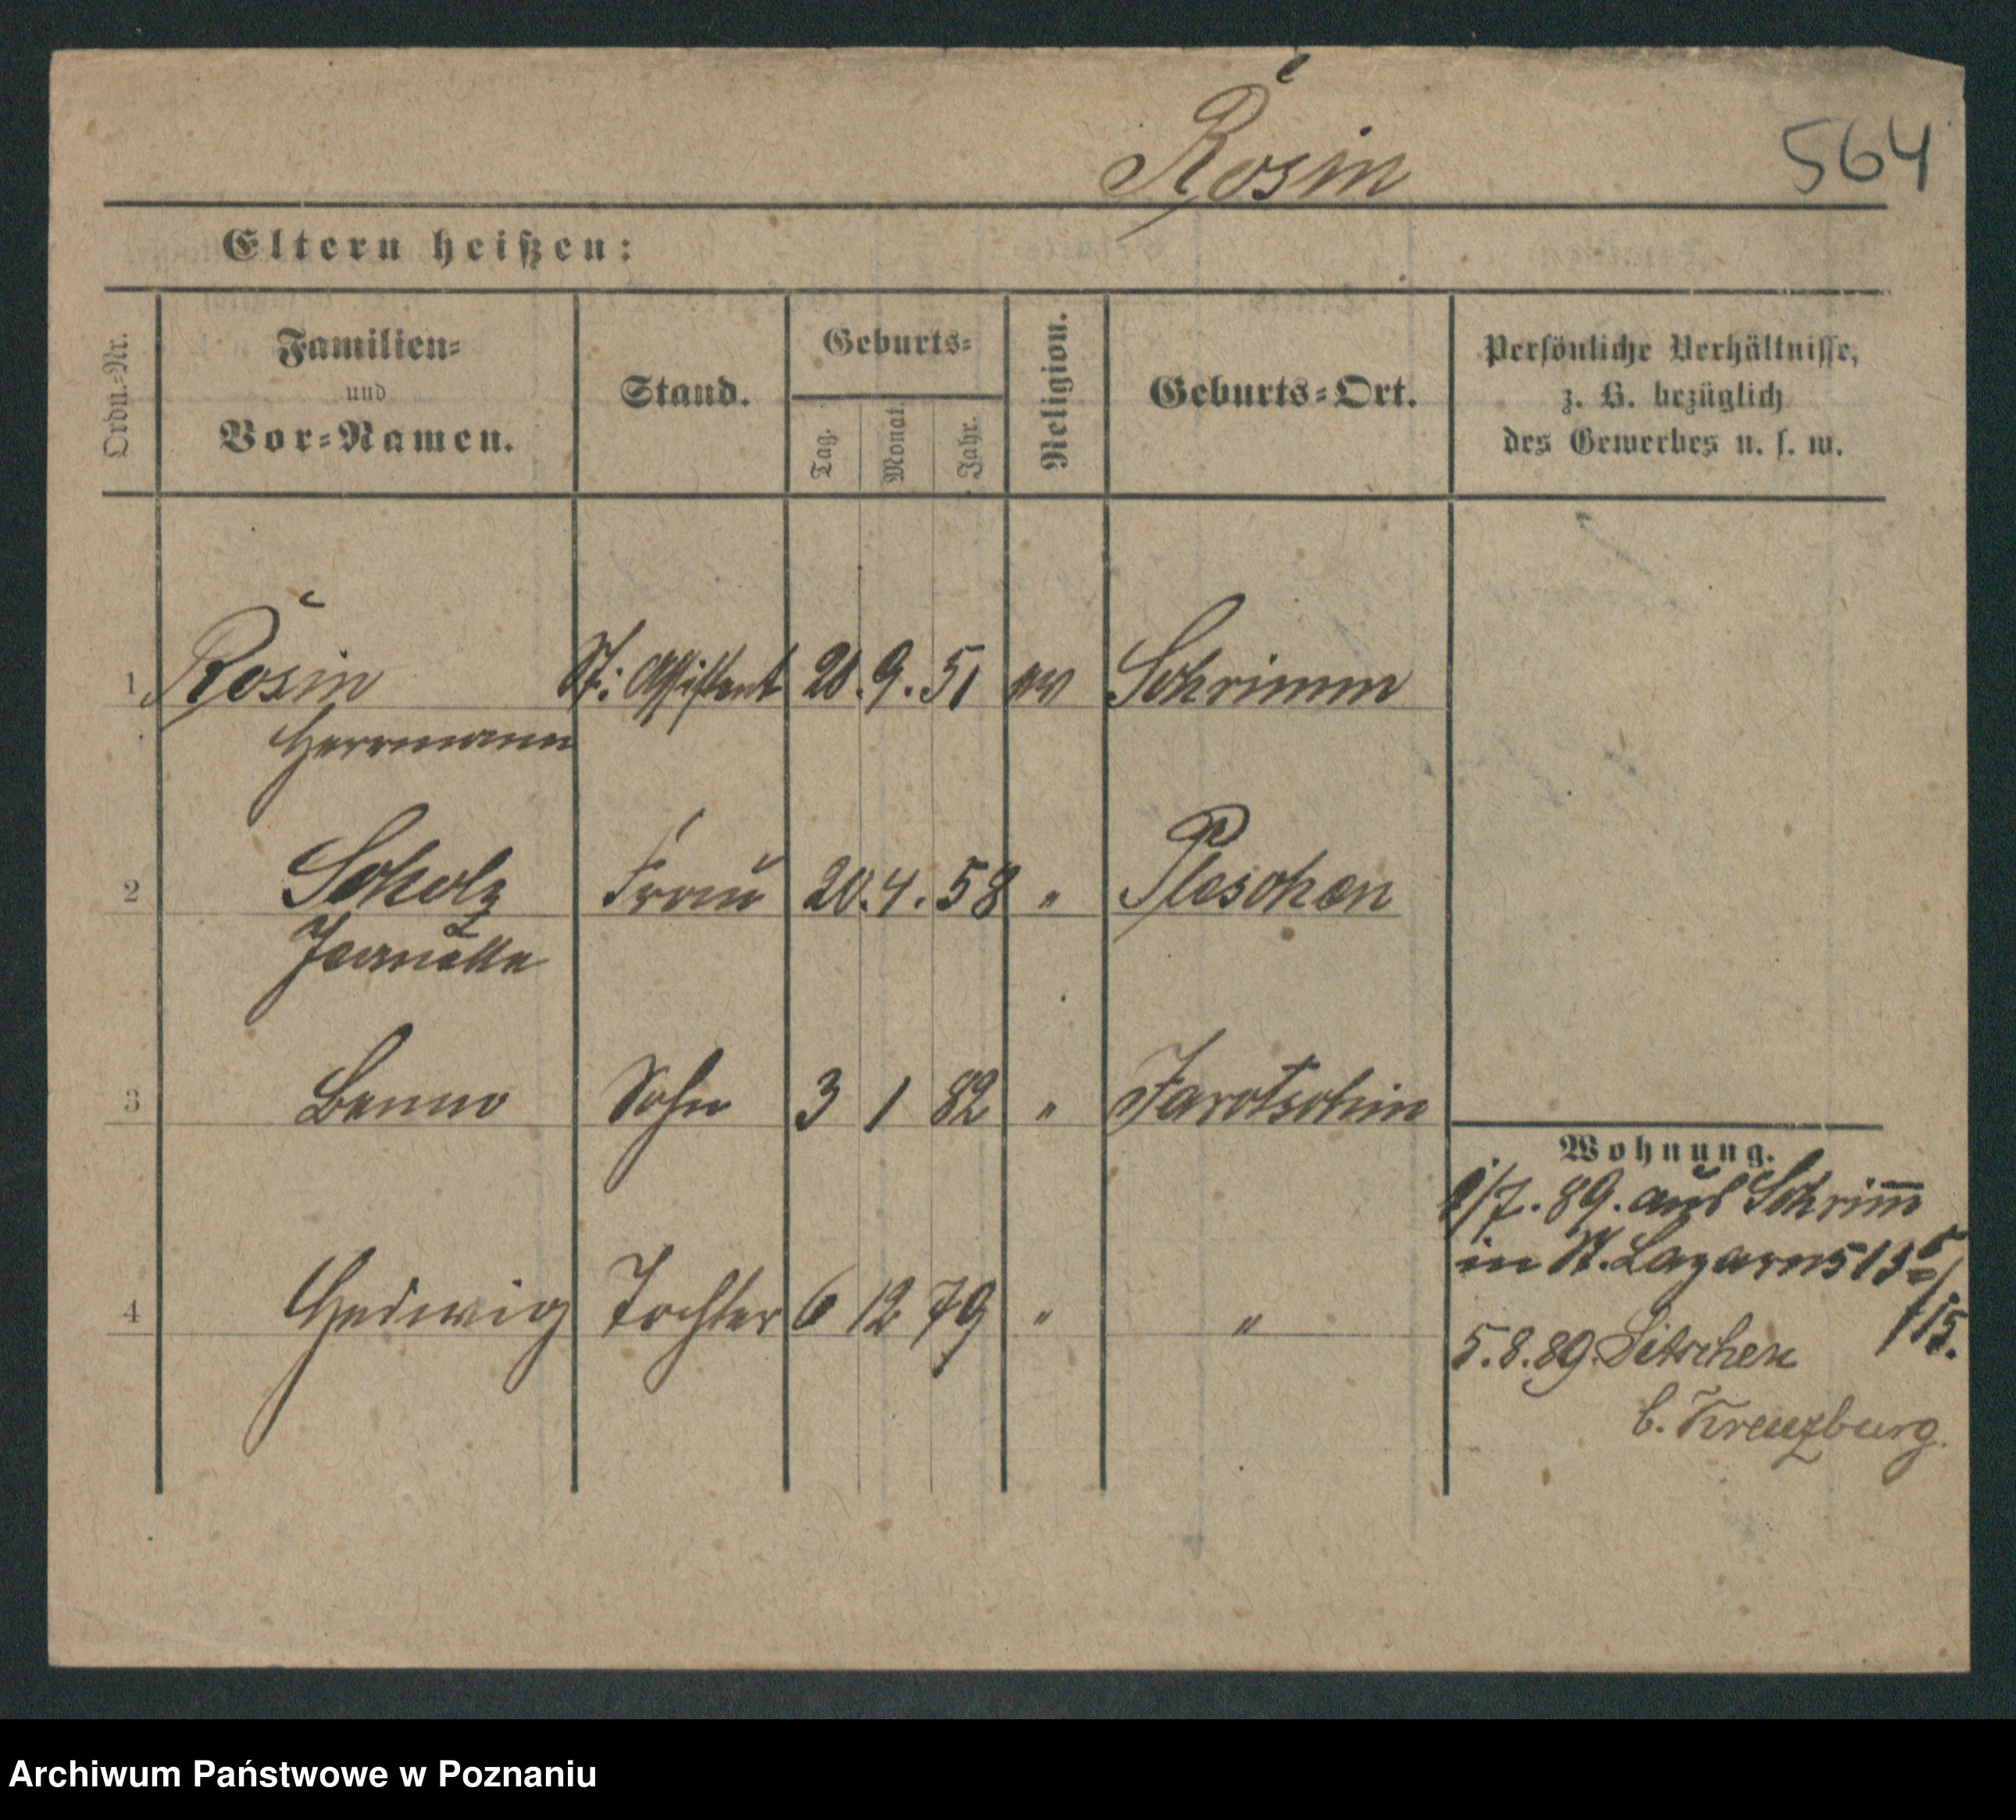 Rosin
564
Eltern heißen:
Ordn.-Nr.
Familien-
und
Vor-Namen.
Stand.
Geburts-
Tag.
Monat.
Jahr.
Religion.
Geburts-Ort.
Persönliche Verhältnisse,
z. B. bezüglich
des Gewerbes u. s. w.
1 Rosin St: Assistent 20. 9. 51 ev Schrimm
Herrmann
2 Scholz Frau 20. 4. 58 " Pleschen
Jeanette
3 Benno Sohn 3 1 82 " Jarotschin
Wohnung.
/7. 89. aus Schrim̅
in St. Lazarus 13
/15.
4 Hedwig Tochter 6 12 79 " "
5. 8. 89. Pitschen
b. Kreuzburg.
Archiwum Państwowe w Poznaniu